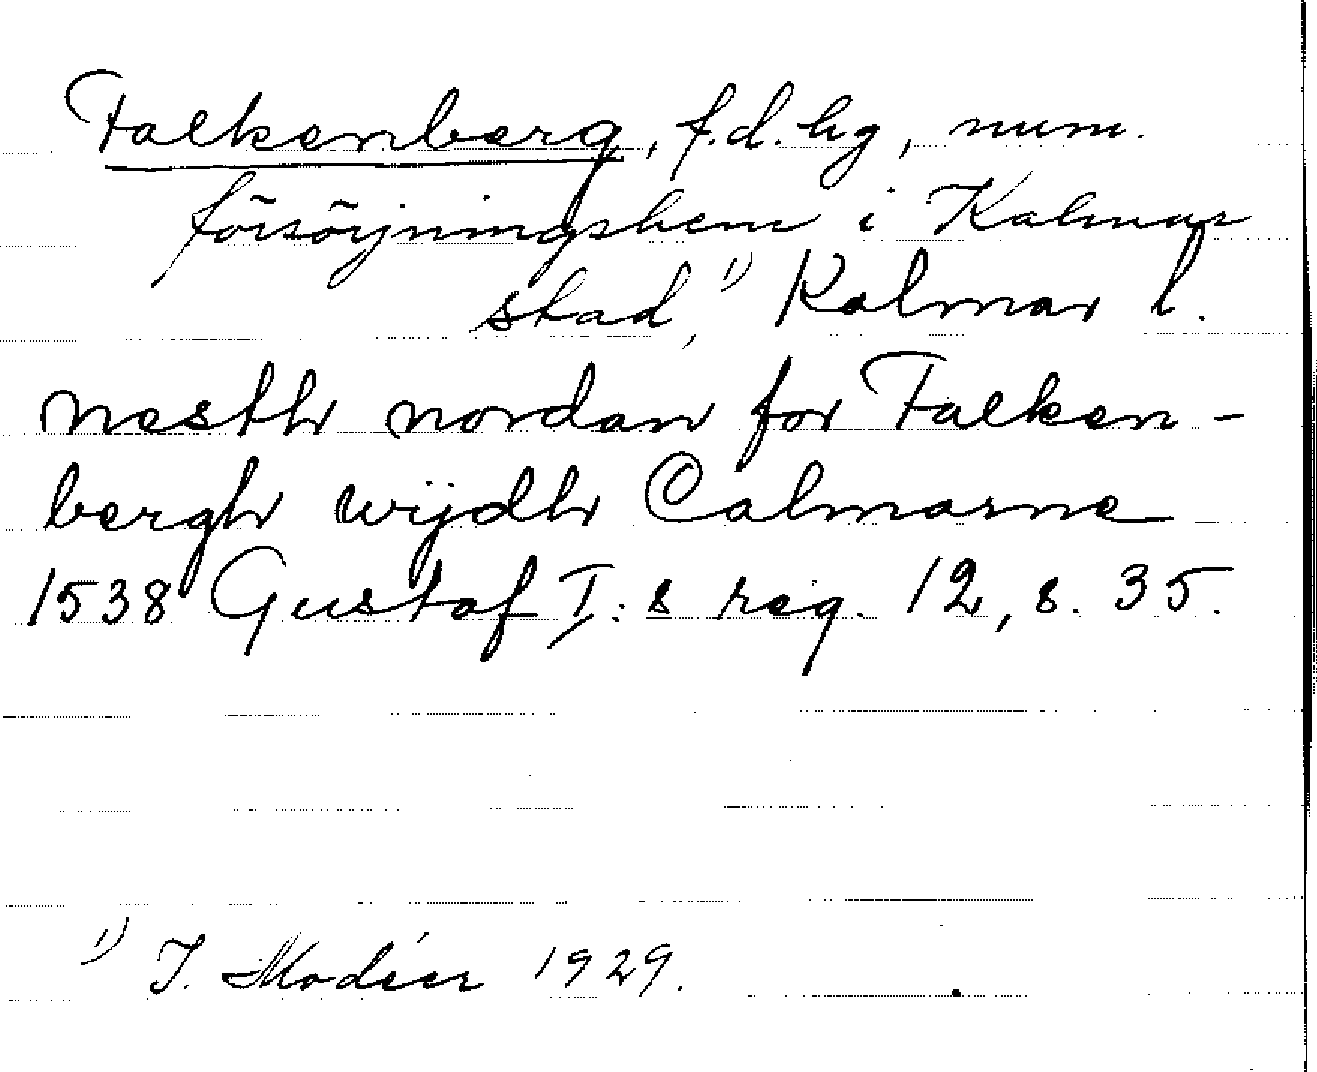 Falkenberg, f.d. hg, num.
försörjningshem i Kalmar
stad,¹⁾ Kalmar l.
nesth nordan for Falken-
bergh wijdh Calmarne
1538 Gustaf I:s reg. 12, s. 35.
¹⁾ I. Modéer 1929.